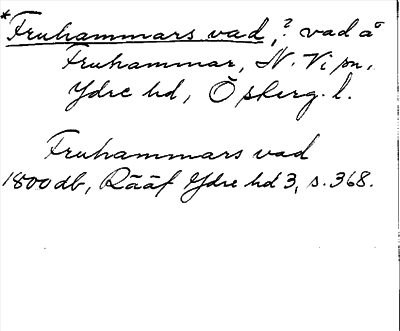 *Fruhammars vad, ? vad å
Fruhammar, N. Vi sn,
Ydre hd, Ö sterg. l.
Fruhammars vad
1800 db, Rääf Ydre hd 3, s. 368.